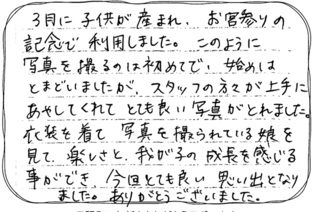 3月に子供が産まれ、お宮参りの
記念で利用しました。このように
写真を撮るのは初めてで、始めは
とまどいましたが、スタッフの方々が上手に
あやしてくれてとても良い写真がとれました。
衣装を着て写真を撮られている娘を
見て、楽しさと、我が子の成長を感じる
事ができ、今回とても良い思い出となり
ました。ありがとうございました。